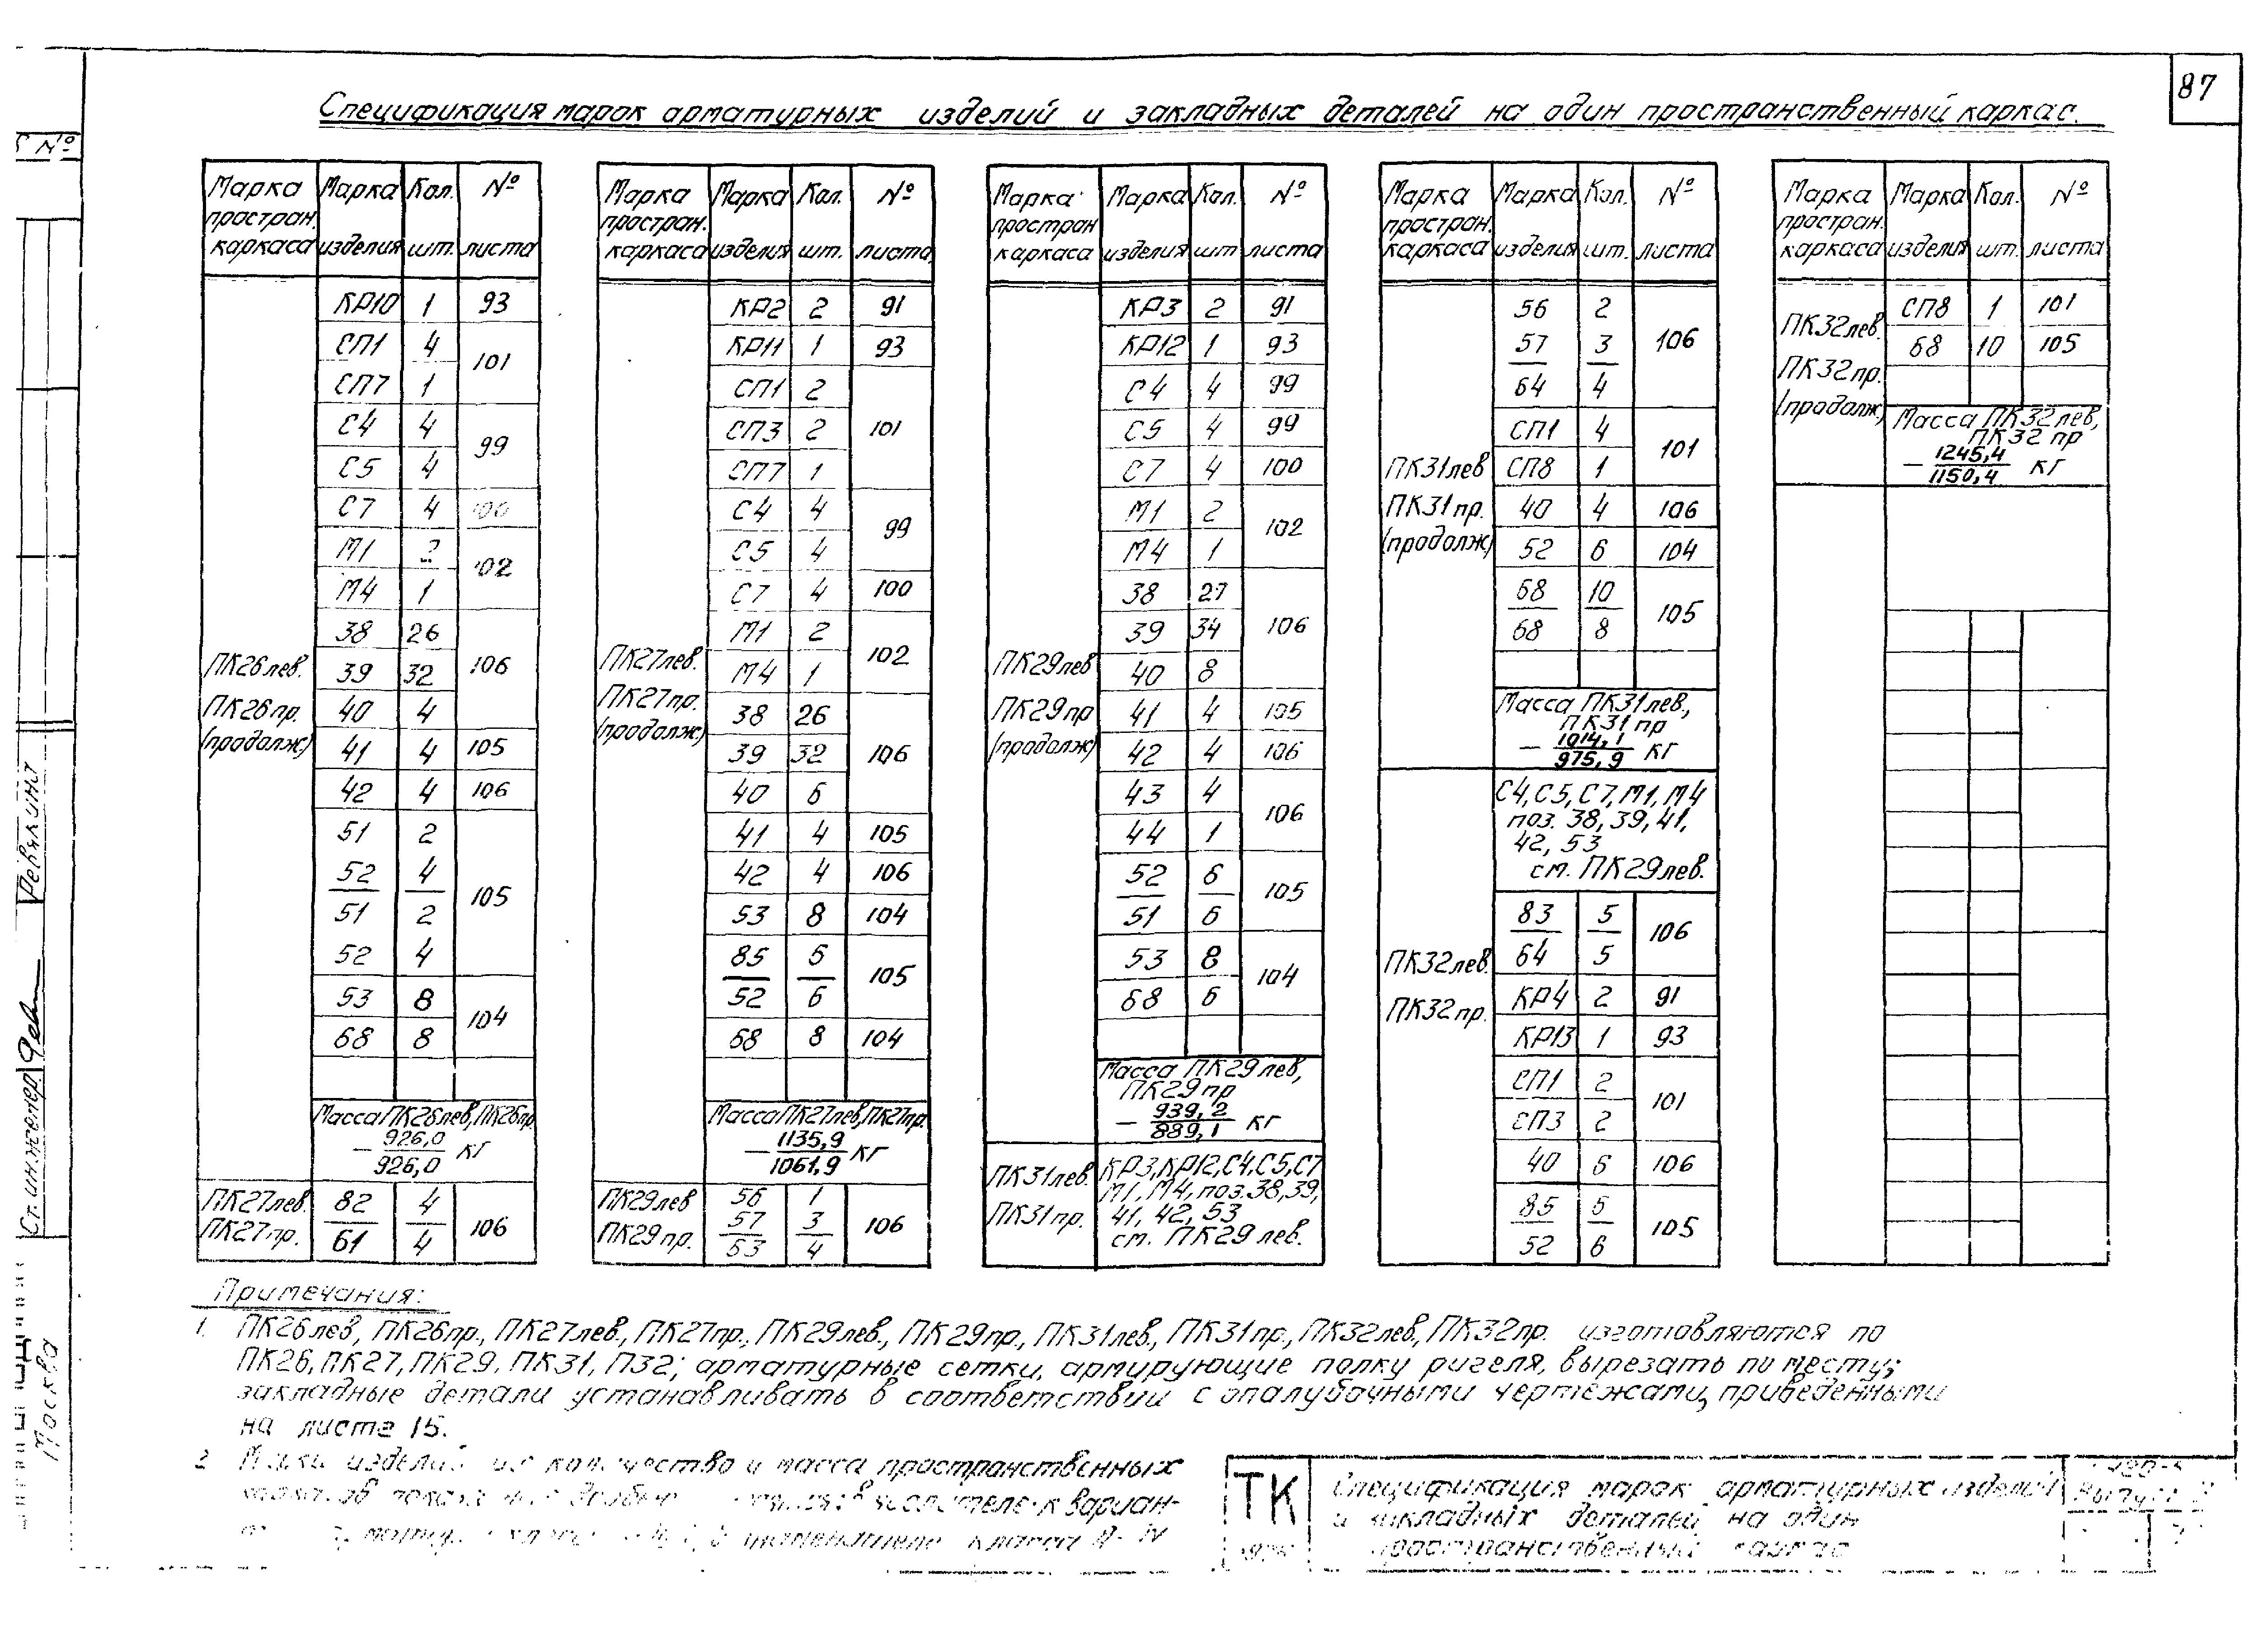 87
Спецификация марок арматурных изделий и закладных деталей на один пространственный каркас.
№
Марка простран. каркаса Марка изделия Кол. шт. № листа
КР10 1 93
СП1 4 101
СП7 1
С4 4 99
С5 4
С7 4 100
М1 2 102
М4 1
38 26 106
39 32
ПК26лев.
ПК26пр.
(продолж)
40 4
41 4 105
42 4 106
51 2 105
52 4
51 2
52 4
53 8 104
68 8
Масса ПК26лев, ПК26пр.
— 926,0 / 926,0 кг
ПК27лев.
ПК27пр.
82 4 106
61 4
Марка простран. каркаса Марка изделия Кол. шт. № листа
КР2 2 91
КР11 1 93
СП1 2 101
СП3 2
СП7 1
С4 4 99
С5 4
С7 4 100
М1 2 102
М4 1
ПК27лев.
ПК27пр.
(продолж)
38 26 106
39 32
40 6
41 4 105
42 4 106
53 8 104
85 6 105
52 6
68 8 104
Масса ПК27лев, ПК27пр.
— 1135,9 / 1061,9 кг
ПК29лев
ПК29пр.
56 1 106
57 3
53 4
Марка простран каркаса Марка изделия Кол. шт № листа
КР3 2 91
КР12 1 93
С4 4 99
С5 4 99
С7 4 100
М1 2 102
М4 1
38 27 106
39 34
40 8
ПК29лев
ПК29пр
(продолж)
41 4 105
42 4 106
43 4 106
44 1
52 6 105
51 6
53 8 104
68 6
Масса ПК29лев,
ПК29пр
— 939,2 / 889,1 кг
ПК31лев.
ПК31пр.
КР3, КР12, С4, С5, С7
М1, М4, поз. 38, 39,
41, 42, 53
см. ПК29 лев.
Марка простран. каркаса Марка изделия Кол. шт. № листа
56 2 106
57 3
64 4
СП1 4 101
СП8 1
ПК31лев
ПК31пр.
(продолж)
40 4 106
52 6 104
68 10 105
68 8
Масса ПК31лев.,
ПК31пр
— 1014,1 / 975,9 кг
С4, С5, С7, М1, М4
поз. 38, 39, 41,
42, 53
см. ПК29лев.
83 5 106
64 5
ПК32лев.
ПК32пр.
КР4 2 91
КР13 1 93
СП1 2 101
СП3 2
40 6 106
85 6 105
52 6
Марка простран. каркаса Марка изделия Кол. шт. № листа
ПК32лев.
ПК32пр.
(продолж)
СП8 1 101
68 10 105
Масса ПК32лев,
ПК32 пр
— 1245,4 / 1150,4 кг
Примечания:
1. ПК26лев, ПК26пр., ПК27лев., ПК27пр., ПК29лев., ПК29пр., ПК31лев., ПК31пр., ПК32лев, ПК32пр. изготовляются по
ПК26, ПК27, ПК29, ПК31, П32; арматурные сетки, армирующие полку ригеля, вырезать по месту;
закладные детали устанавливать в соответствии с опалубочными чертежами, приведенными
на листе 15.
2 изделий количество и масса пространственных
в знаменателе класса А-IV
ТК
Спецификация марок арматурных изделий
и закладных деталей на один
пространственный каркас
Ст. инженер
Ревякина
Москва